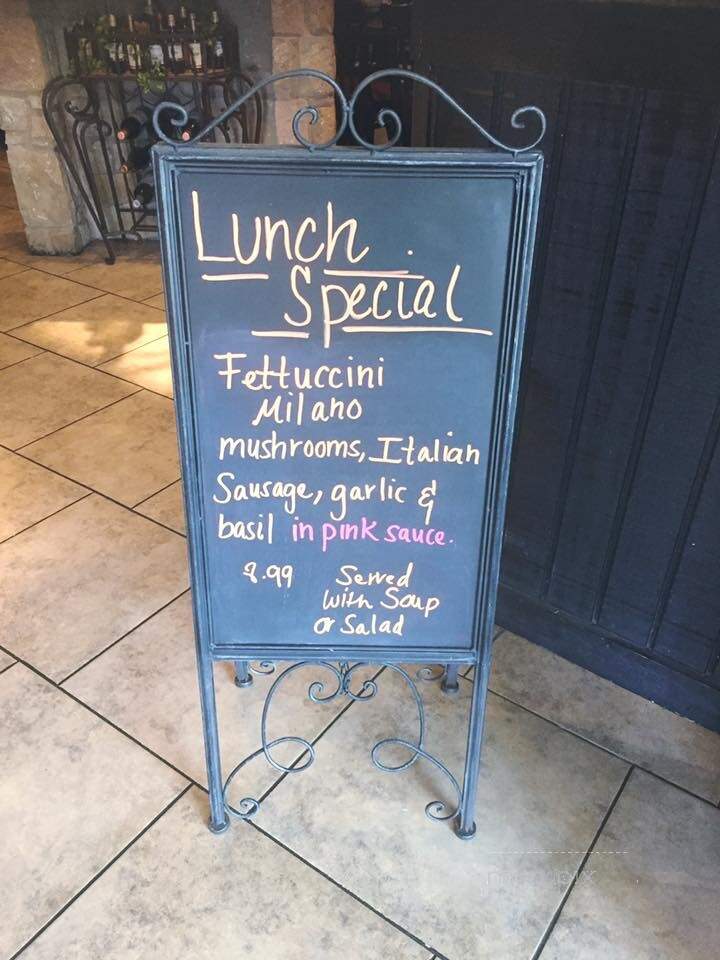 Lunch
Special
Fettuccini
Milano
mushrooms, Italian
Sausage, garlic &
basil in pink sauce.
8.99 Served
with Soup
or Salad